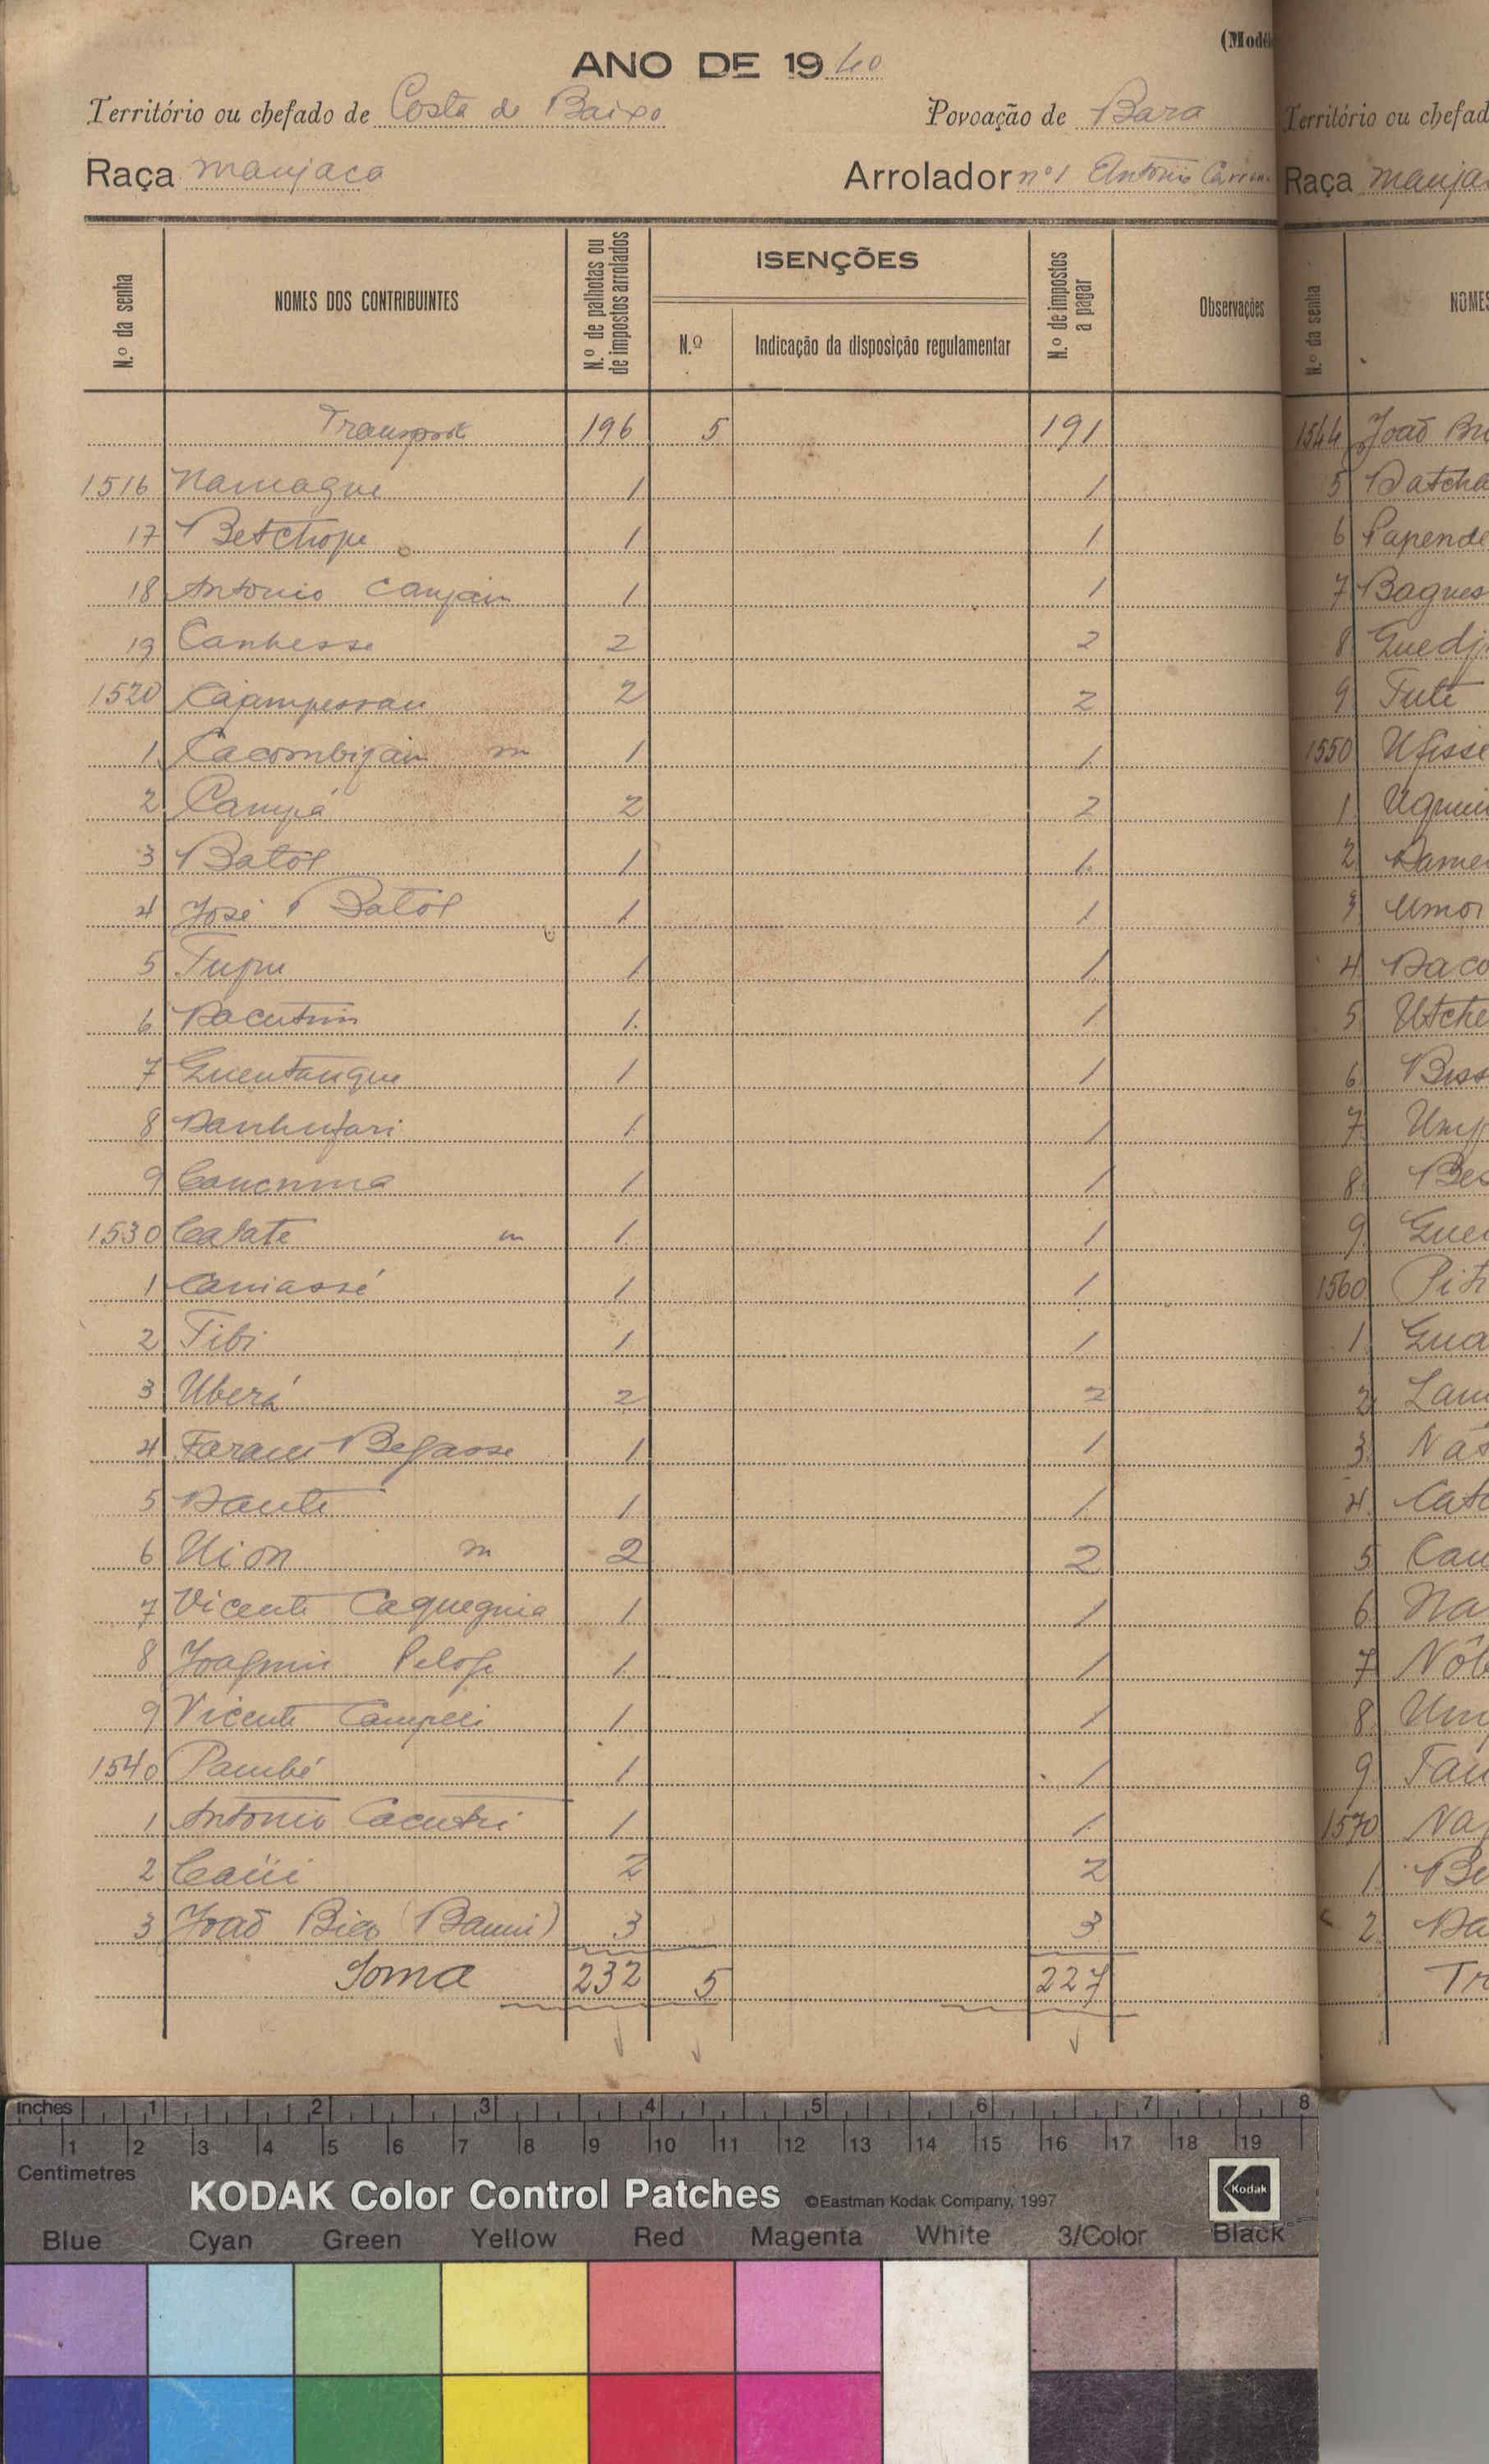 (Mode
ANO DE 1940
Território ou chefado de Costa de Baixo Povoação de Bara
Raça manjaca Arrolador nº 1 António
N.º da senha
NOMES DOS CONTRIBUINTES
N.º de palhotas ou de impostos arrolados
ISENÇÕES
N.º
Indicação da disposição regulamentar
N.º de impostos a pagar
Observações
Transporte 196 5 191
1516 Namague 1 1
17 Betchope 1 1
18 Antonio Canjain 1 1
19 Canhesse 2 2
1520 Cajampessau 2 2
1 Cacombijain m 1 1
2 Campá 2 2
3 Batol 1 1
4 José Batol 1 1
5 Tupu 1 1
6 Dacutim 1 1
7 Guentangue 1 1
8 Danhufari 1 1
9 1 1
1530 Calate m 1 1
1 Caniassé 1 1
2 Tibi 1 1
3 Uberá 2 2
4 1 1
5 Dante 1 1
6 Uion m 2 2
7 Vicente Caquegnia 1 1
8 Joaquim 1 1
9 Vicente Campeli 1 1
1540 Pambé 1 1
1 António Cacutri 1 1
2 Caüi 2 2
3 João Bico (Bauni) 3 3
Soma 232 5 227
Território ou chefad
Raça manja
N.º da senha
NOMES
1544 João
5 Datcha
6 Papende
7 Bagues
8 Guedj
9 Tuté
1550 Ufisse
1
2 Dame
3 Umo
4 Daco
5 Utche
6 Biss
7 Ump
8 Bes
9 Gue
1560 Pit
1 Gua
2 Lam
3 Nás
4 Catc
5 Cau
6 Na
7 Nôb
8 Um
9 Tau
1570 Na
1 Be
2 Da
Tr
inches 1 2 3 4 5 6 7 8
1 2 3 4 5 6 7 8 9 10 11 12 13 14 15 16 17 18 19
Centimetres
KODAK Color Control Patches ©Eastman Kodak Company, 1997 Kodak
Blue Cyan Green Yellow Red Magenta White 3/Color Black